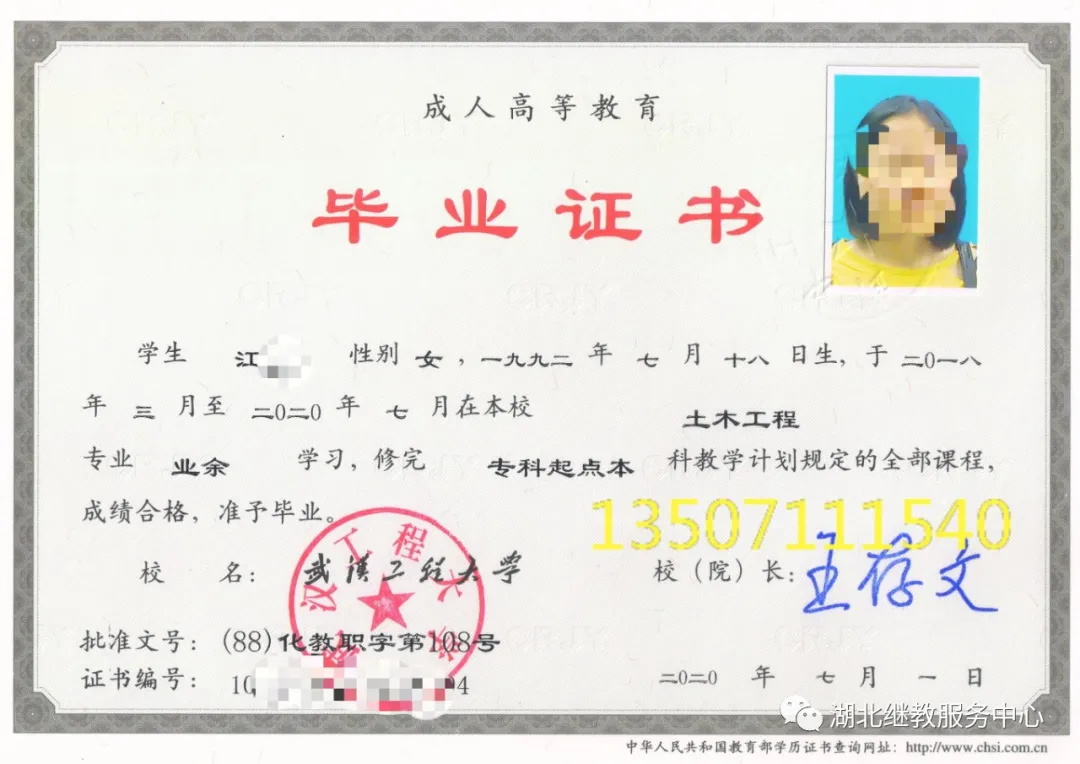 成人高等教育
毕业证书
学生 江 性别 女，一九九二 年 七 月 十八 日生，于 二〇一八
年 三 月至 二〇二〇 年 七 月在本校 土木工程
专业 业余 学习，修完 专科起点本 科教学计划规定的全部课程，
成绩合格，准予毕业。
13507111540
校 名： 武汉工程大学 校（院）长： 王存文
批准文号： (88)化教职字第108号
证书编号： 10 04
二〇二〇 年 七 月 一 日
湖北继教服务中心
中华人民共和国教育部学历证书查询网址：http://www.chsi.com.cn